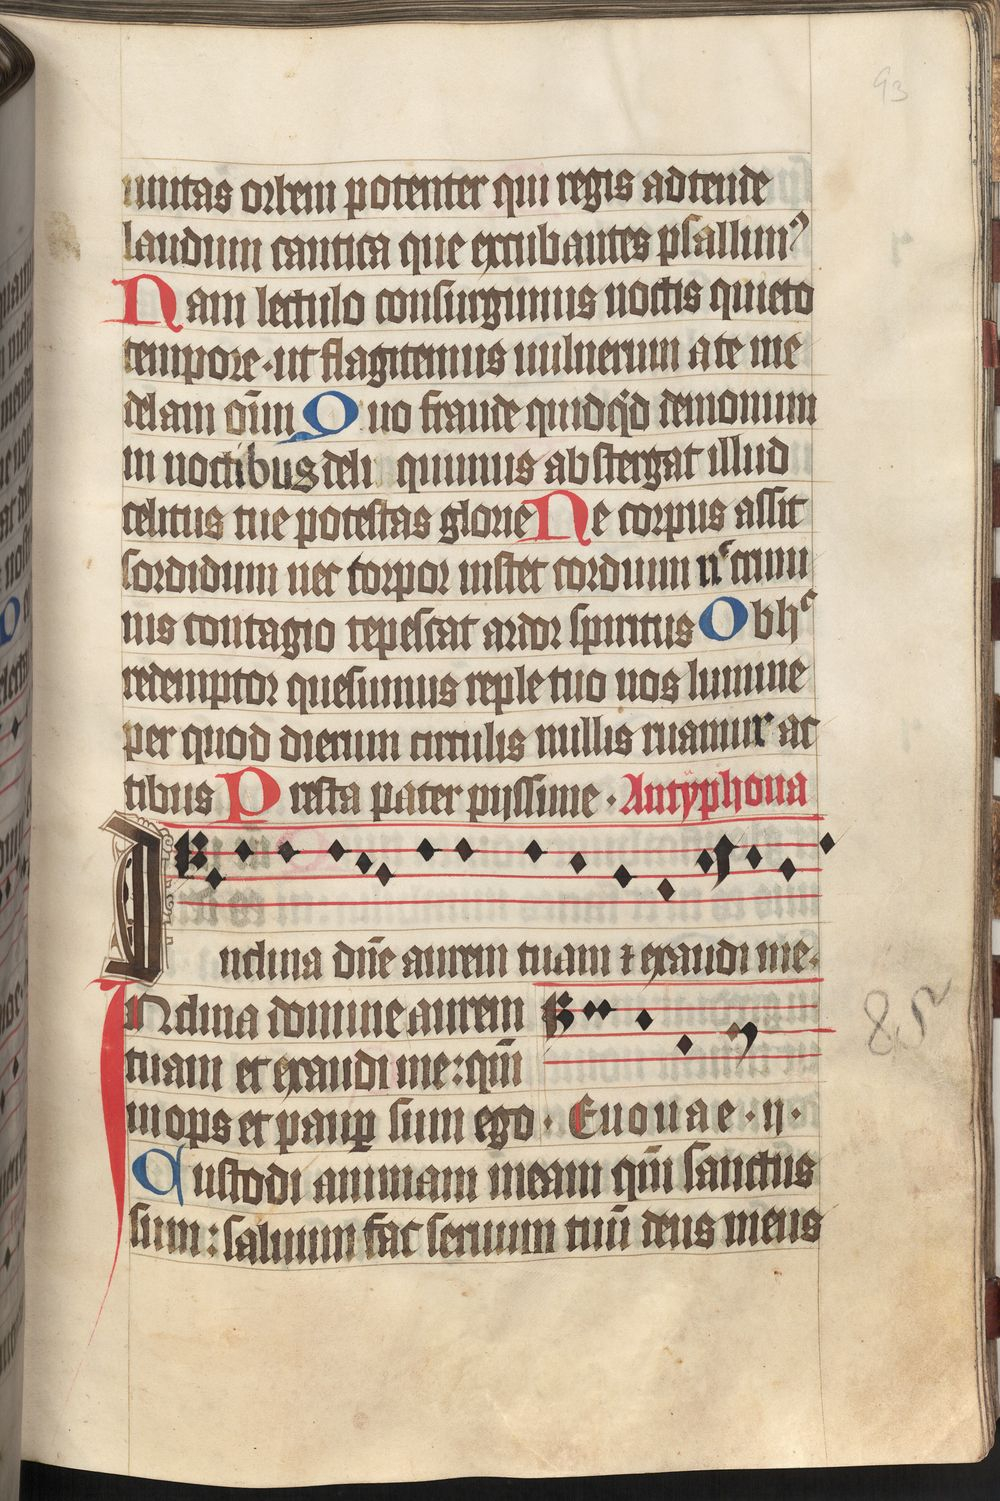 93
unitas orbem potenter qui regis adtende
laudum cantica que excubantes psallimꝰ
Nam lectulo consurgimus noctis quieto
tempore · ut flagitemus uulnerum a te me
delam oīm Quo fraude quidqͥd demonum
in noctibus deliquimus abstergat illud
celitus tue potestas glorie Ne corpus assit
sordidum nec torpor instet cordium nͨ crimi
nis contagio tepescat ardor spiritus Ob hͨ
redemptor quesumus reple tuo nos lumine
per quod dierum circulis nullis ruamur ac
tibus Presta pater pijssime · Antyphona
Inclina dn̄e aurem tuam ⁊ exaudi me ·
INclina domine aurem
tuam et exaudi me : qm̄
inops et paup̱ sum ego · Euouae · ij ·
85
Custodi animam meam qm̄ sanctus
sum : saluum fac seruum tuū deus meus